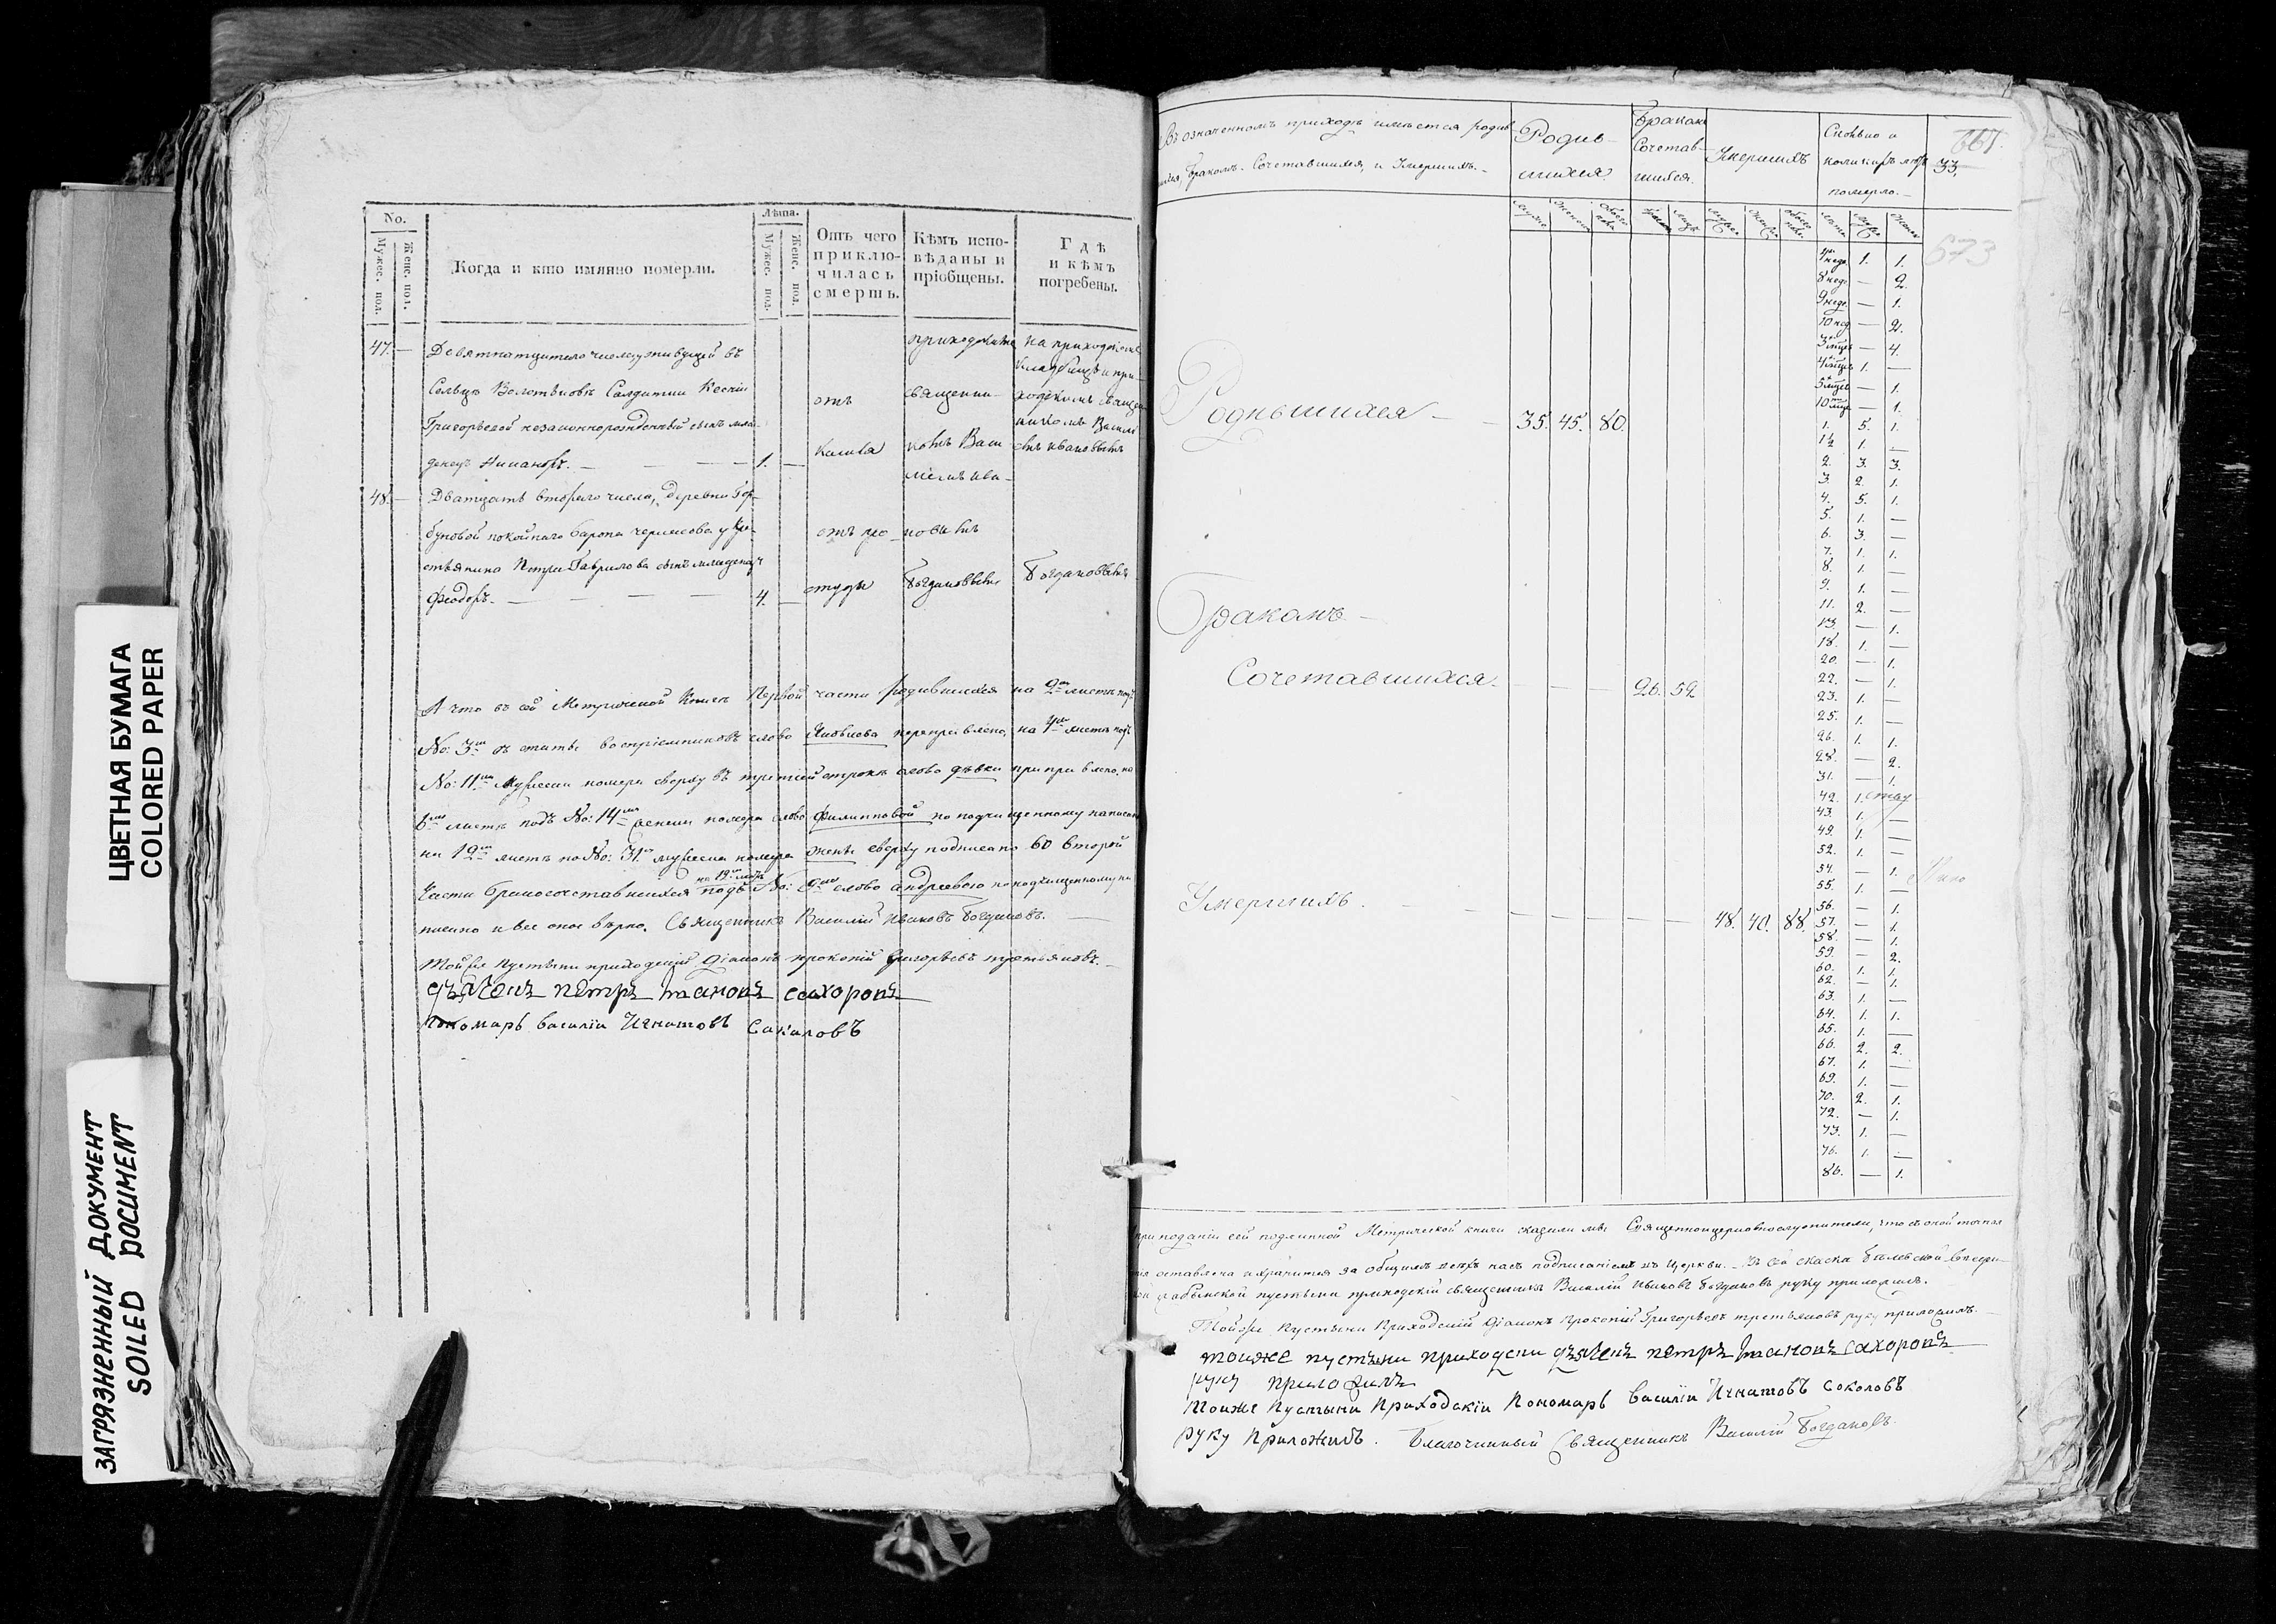 ЦВЕТНАЯ БУМАГА
COLORED PAPER
ЗАГРЯЗНЕННЫЙ ДОКУМЕНТ
SOILED DOCUMENT
No.
Мужес. пол.
Женс. пол.
Когда и кто имянно померли.
Лѣта.
Мужес. пол.
Женс. пол.
Отъ чего
приклю-
чилась
смерть.
Кѣмъ испо-
вѣданы и
пріобщены.
Гдѣ
и кѣмъ
погребены.
47. — Девятнатцатого числа живущей въ
Сельцѣ Салдатки
Григорьевой незаконнорожденный сынъ мла-
денецъ Никаноръ. — 1. —
отъ
кашля
приходскимъ
священни-
комъ Васи-
на приходскомъ
кладбищѣ и при-
ходскимъ священ-
никомъ Васил-
48. — Дватцать втораго числа, деревни Гор-
буновой покойнаго барона Черкасова у кре-
стьянина Петра Гаврилова сынъ младенецъ
Феодоръ. — 4. —
отъ про-
студы
Богдановымъ
Богдановымъ
А что въ сей Метрической Книгѣ Первой части родившихся на 2мъ листѣ подъ
No: 3мъ въ статьѣ воспріемниковъ слово переправлено, на 4мъ листѣ подъ
No: 11мъ мужеска номера сверху въ третіей строкѣ слово дѣвки приправлено, на
6мъ листѣ подъ No: 14мъ женска номера слово Филипповой по подчищенному написано
на 12мъ листѣ по No: 31мъ мужеска номера жены сверху подписано во второй
Части бракосочетавшихся на 19мъ листѣ подъ No: слово андреевою по подчищенному на-
писано и все оное вѣрно. Священникъ Василій Ивановъ Богдановъ. —
Тойже Пустыни приходскій Діаконъ Прокопій Григорьевъ Третьяковъ. —
дьячекъ петръ сахоровъ
Пономарь василіи Игнатовъ Сакаловъ
Въ означенномъ приходѣ имѣется родив-
шихся, бракомъ Сочетавшихся, и Умершихъ. —
Родив-
шихся.
Бракомъ
Сочетав-
шихся.
Умершихъ
Сколько и
коликихъ лѣтъ
померло. —
667.
33.
673
Родившихся — 35. 45. 80.
Бракомъ —
Сочетавшихся. — — — 26. 52
Умершихъ. — — — — — — 48. 40. 88.
1. 1.
8 нед. — 2.
9 нед. — 1.
10 нед. — 2.
3 — 4.
4 1. —
5 — 1.
10 — 1.
1. 5. 1.
1½ 1. —
2. 3. 3.
3. 2. 1.
4. 5. 1.
5. 1. —
6. 3. —
7. 1. 1.
8. 1. —
9. 1. —
11. 2. —
13. — 1.
18. 1. —
20. — 1.
22. — 1.
23. 1. —
25. 1. —
26. 1. 1.
28. — 2.
31. — 1.
42. 1.
43. 1. —
49. 1. —
52. 1. —
54. — 1.
55. 1. —
56. — 1.
57. — 1.
58. — 1.
59. — 2.
60. 1. 1.
62. — 1.
63. 1. —
64. 1. 1.
65. 1. —
66. 2. 2.
67. 1. —
69. 1. —
70. 2. 1.
72. — 1.
73. 1. —
76. 1. —
86. — 1.
при поданіи сей подлинной Метрической книги сказали мы Священноцерковнослужители, что съ оной точная
оставлена и хранится за общимъ всѣхъ насъ подписаніемъ въ Церкви. — Къ сей скаскѣ
пустыни приходскій священникъ Василій Ивановъ Богдановъ руку приложилъ.
Тойже Пустыни Приходскій Діаконъ Прокопій Григорьевъ Третьяковъ руку приложилъ. —
тоиже пустыни приходски дьячекъ петръ сахоровъ
руку приложилъ
Тоиже Пустыни Приходскіи Пономарь Василіи Игнатовъ Соколовъ
Руку Приложилъ. Благочинный Священникъ Василій Богдановъ.